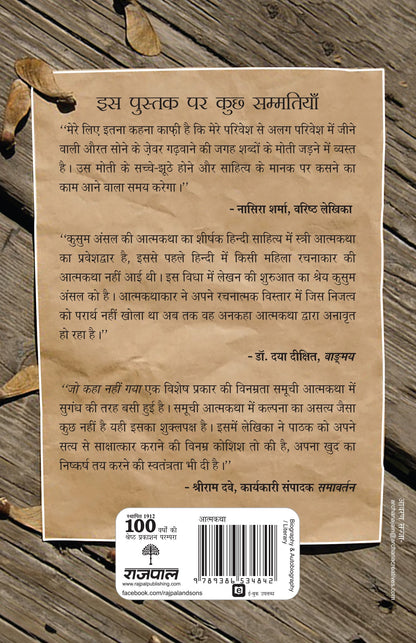 इस पुस्तक पर कुछ सम्मतियाँ
‘‘मेरे लिए इतना कहना काफ़ी है कि मेरे परिवेश से अलग परिवेश में जीने
वाली औरत सोने के ज़ेवर गढ़वाने की जगह शब्दों के मोती जड़ने में व्यस्त
है। उस मोती के सच्चे-झूठे होने और साहित्य के मानक पर कसने का
काम आने वाला समय करेगा।’’
- नासिरा शर्मा, वरिष्ठ लेखिका
‘‘कुसुम अंसल की आत्मकथा का शीर्षक हिन्दी साहित्य में स्त्री आत्मकथा
का प्रवेशद्वार है, इससे पहले हिन्दी में किसी महिला रचनाकार की
आत्मकथा नहीं आई थी। इस विधा में लेखन की शुरुआत का श्रेय कुसुम
अंसल को है। आत्मकथाकार ने अपने रचनात्मक विस्तार में जिस निजत्व
को परार्थ नहीं खोला था अब तक वह अनकहा आत्मकथा द्वारा अनावृत
हो रहा है।’’
- डॉ. दया दीक्षित, वाङ्मय
‘‘जो कहा नहीं गया एक विशेष प्रकार की विनम्रता समूची आत्मकथा में
सुगंध की तरह बसी हुई है। समूची आत्मकथा में कल्पना का असत्य जैसा
कुछ नहीं है यही इसका शुक्लपक्ष है। इसमें लेखिका ने पाठक को अपने
सत्य से साक्षात्कार कराने की विनम्र कोशिश तो की है, अपना खुद का
निष्कर्ष तय करने की स्वतंत्रता भी दी है।’’
- श्रीराम दवे, कार्यकारी संपादक समावर्तन
स्थापित 1912
100 वर्षों की
श्रेष्ठ प्रकाशन परम्परा
राजपाल
www.rajpalpublishing.com
facebook.com/rajpalandsons
आत्मकथा
9 789386 534842
ई-बुक उपलब्ध
Biography & Autobiography
/ Literary